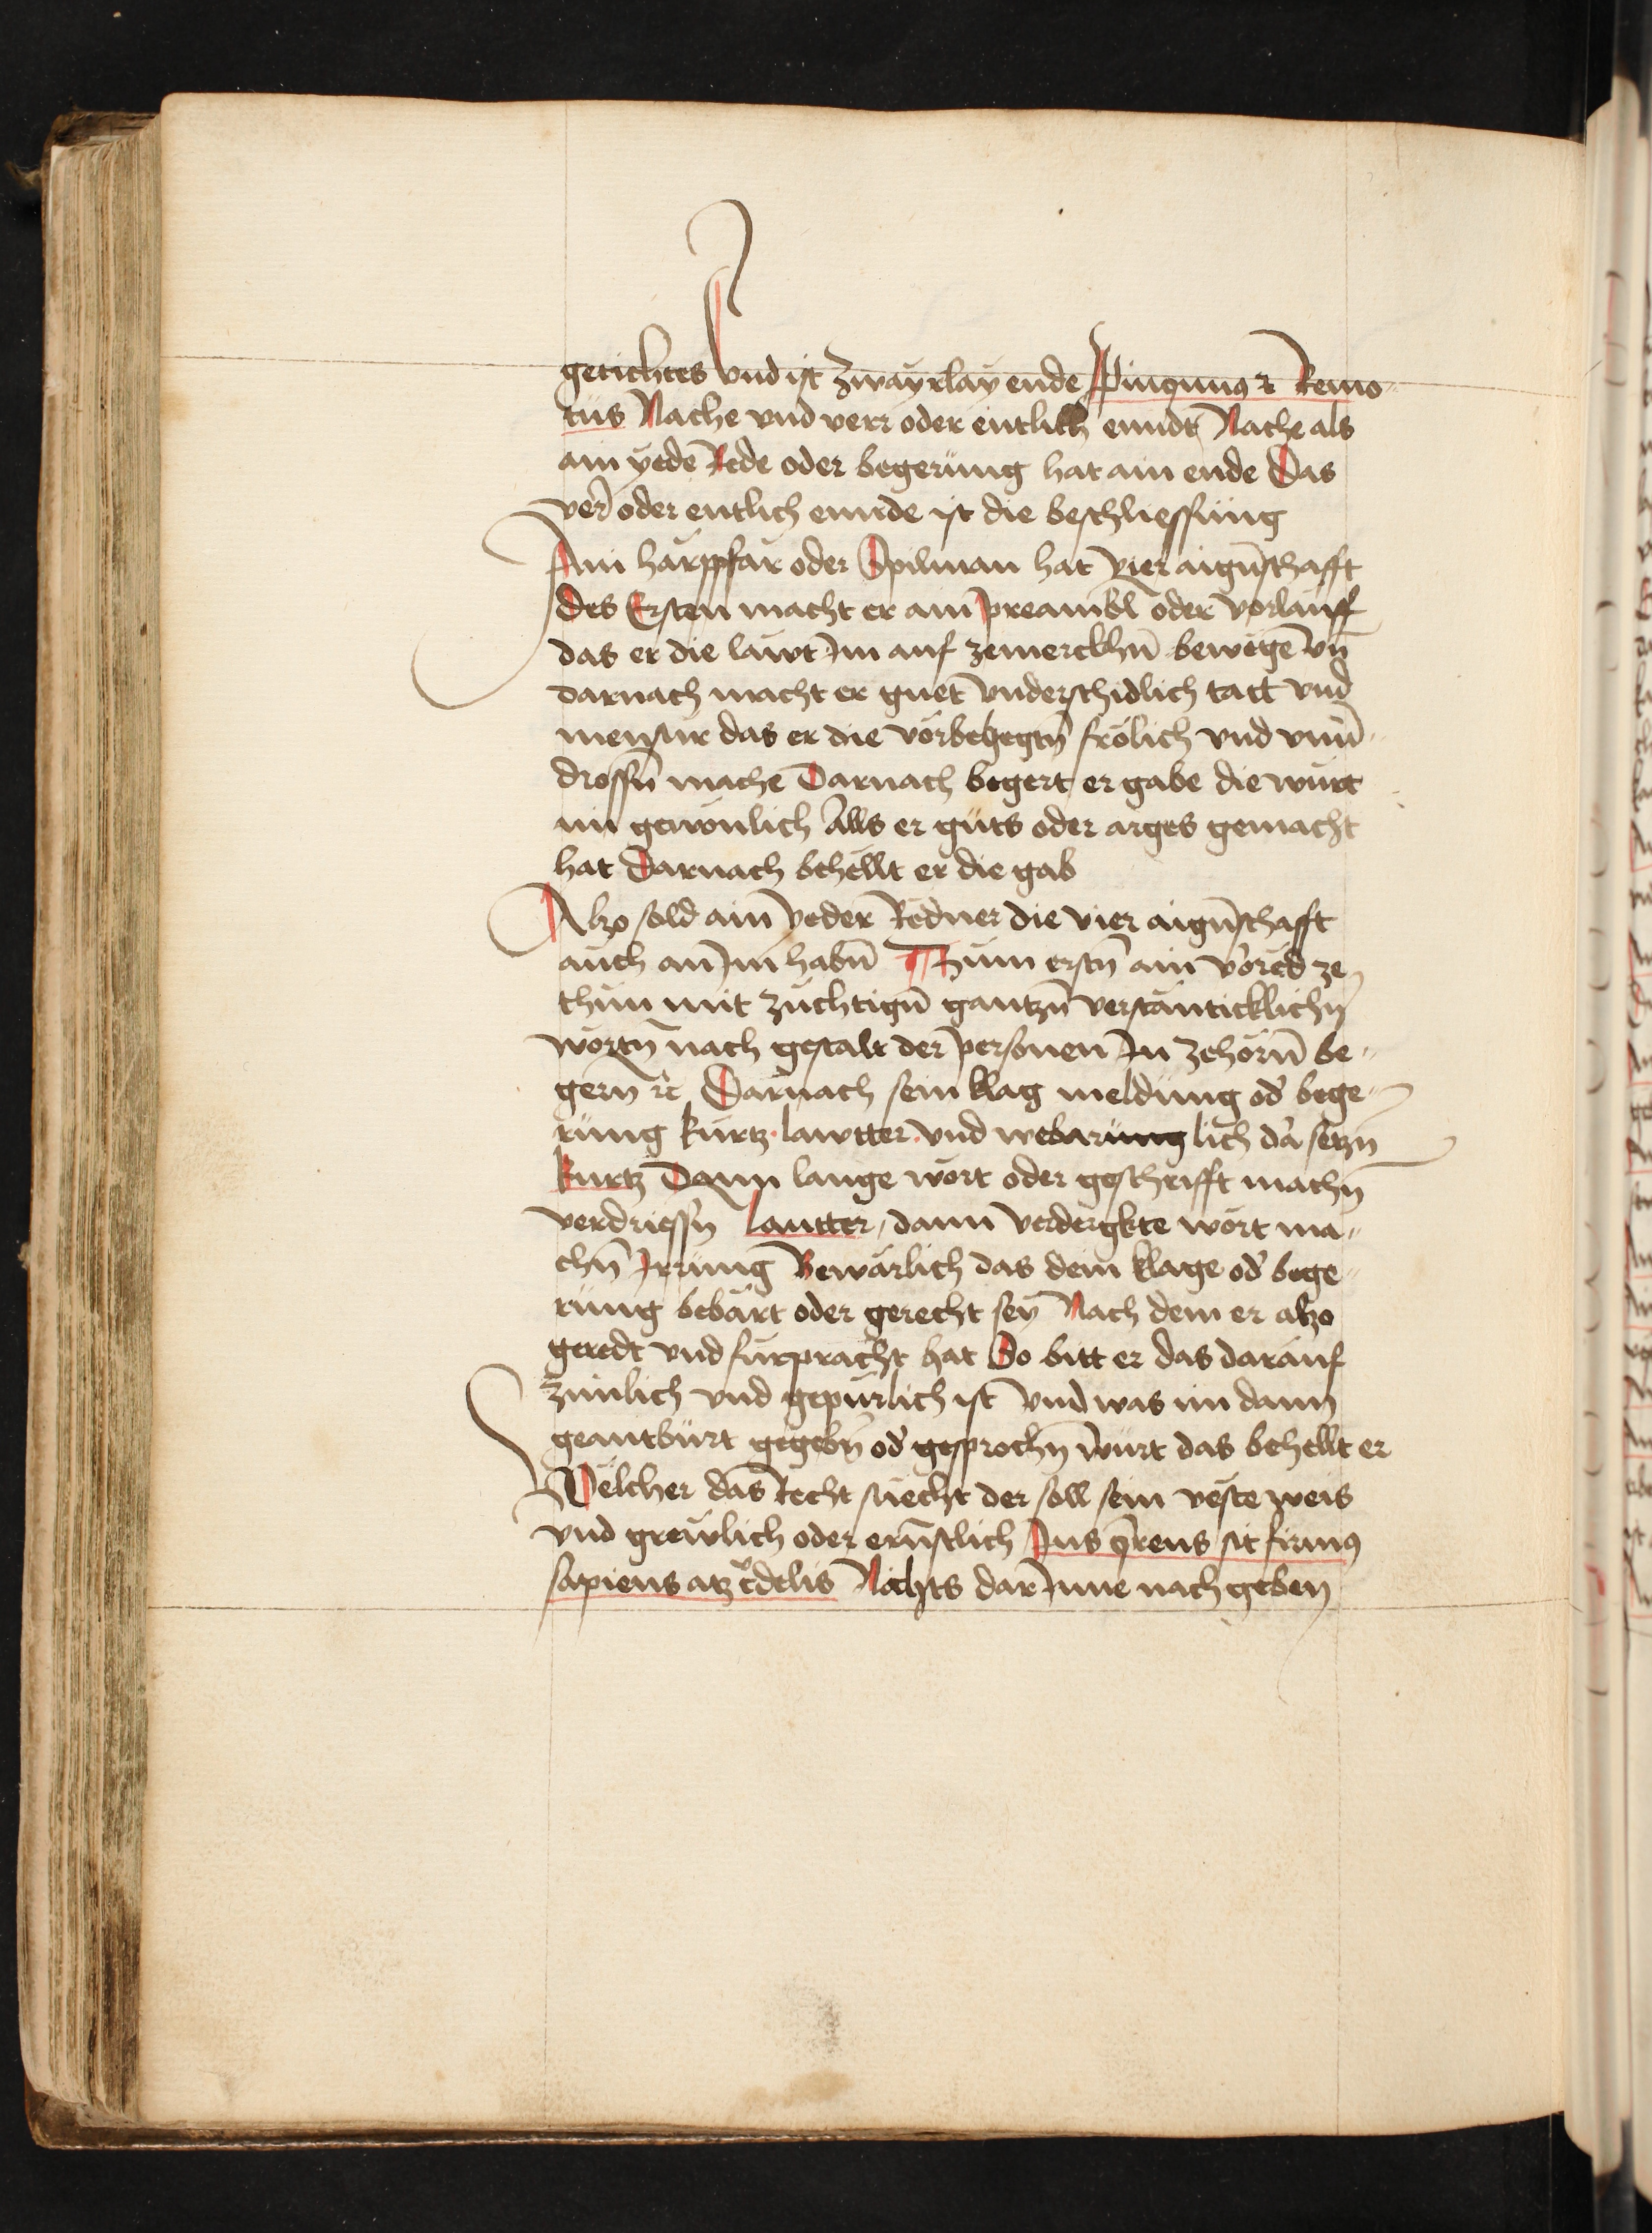 gerichtes vnd ist zwayrlay ende Ppinqunus et Remo-
tus Nache vnd verr oder entlich enndt Nache als
ain yede Rede oder begerung hat ain ende Das
verr oder entlich ennde ist die beschliessung
Ain harpfar oder Spilman hat vier aigñschafft
des Ersten macht er ain preambl oder vorlauff
das er die lawt Im auf zemerckhñ bewege vñ
darnach macht er guet vnderschidlich tact vnd
mensur das er die frölich vnd vnũ-
drossñ mache Darnach begert er gabe die wurt
im gewonlich Alls er guts oder arges gemacht
hat Darnach behellt er die gab
Also sold ain yeder Redner die vier aigñschafft
auch an Im habñ Zum erstñ ain vored ze
thun mit zuchtigñ gantzñ verstanticklichñ
wortñ nach gestalt der personen In zehorñ be-
gern etc Darnach sein klag meldung od bege-
rung kurtz lawtter vnd webarung lich da setzñ
kurtz Dann lange wort oder geschrifft machñ
verdriessñ lautter dann verdergkte wort ma-
chñ Irrung Bewarlich das dein klage od bege-
rung bebart oder gerecht sey Nach dem er also
geredt vnd furpracht hat So bitt er das darauf
zimlich vnd gepurlich ist vnd was im dann
geantburt gegebñ od gesprochñ wurt das behellt er
Welcher das Recht suecht der soll sein veste weis
vnd grewlich oder ernstlich Ius qrens sit firmus
sapiens atz Nichts dar Inne nach geben